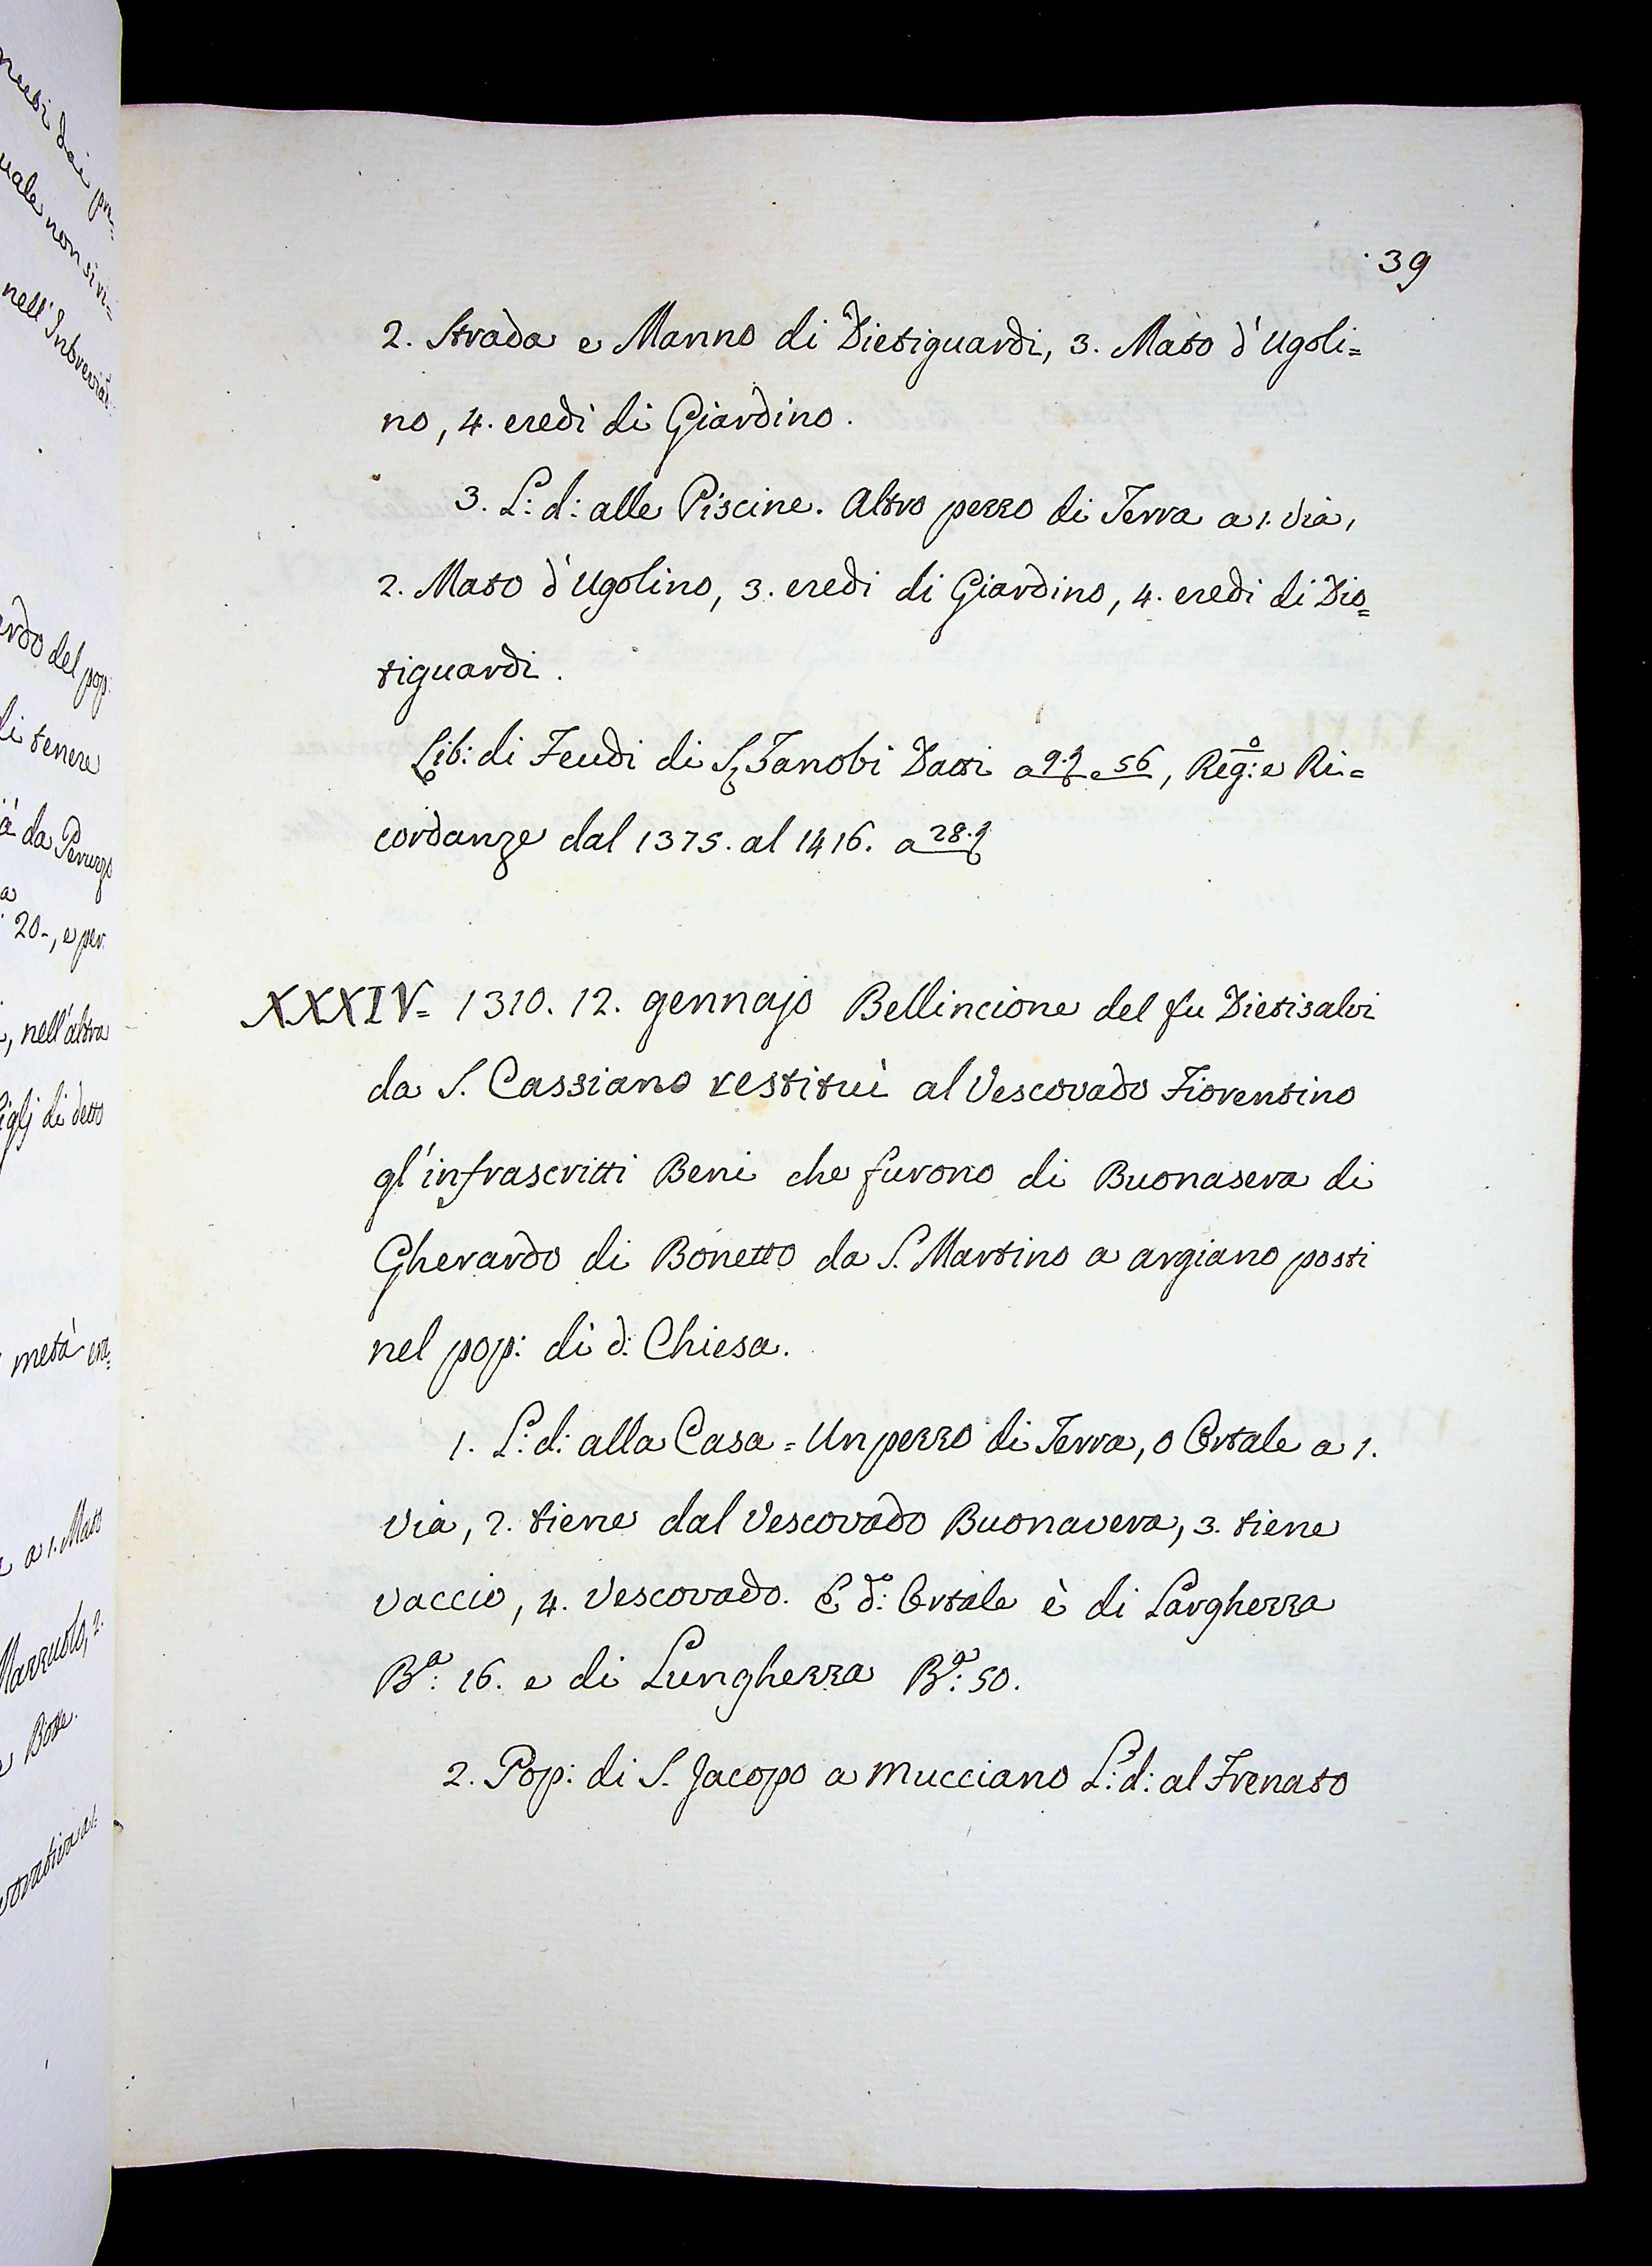 39
2. Strada e Manno di Dietiguardi, 3. Mato d'Ugoli=
no, 4. eredi di Giardino.
3. L: d: alle Piscine. Altro pezzo di Terra a 1. via,
2. Mato d'Ugolino, 3. eredi di Giardino, 4. eredi di Dio=
tiguardi.
Lib: di Feudi di Zanobi Dati a 9. e 56, Reg:o e Ri=
cordanze dal 1375. al 1416. a 28.
XXXIV= 1310. 12. gennajo Bellincione del fu Dietisalvi
da S. Cassiano restituì al Vescovado Fiorentino
gl'infrascritti Beni che furono di Buonasera di
Gherardo di Bonetto da S. Martino a argiano posti
nel pop: di d: Chiesa.
1. L: d: alla Casa = Un pezzo di Terra, o Ortale a 1.
via, 2. tiene dal Vescovado Buonavera, 3. tiene
Vaccio, 4. Vescovado. E d:o Ortale è di Larghezza
B:a 16. e di Lunghezza B:a 50.
2. Pop: di S. Jacopo a Mucciano L: d: al Frenato